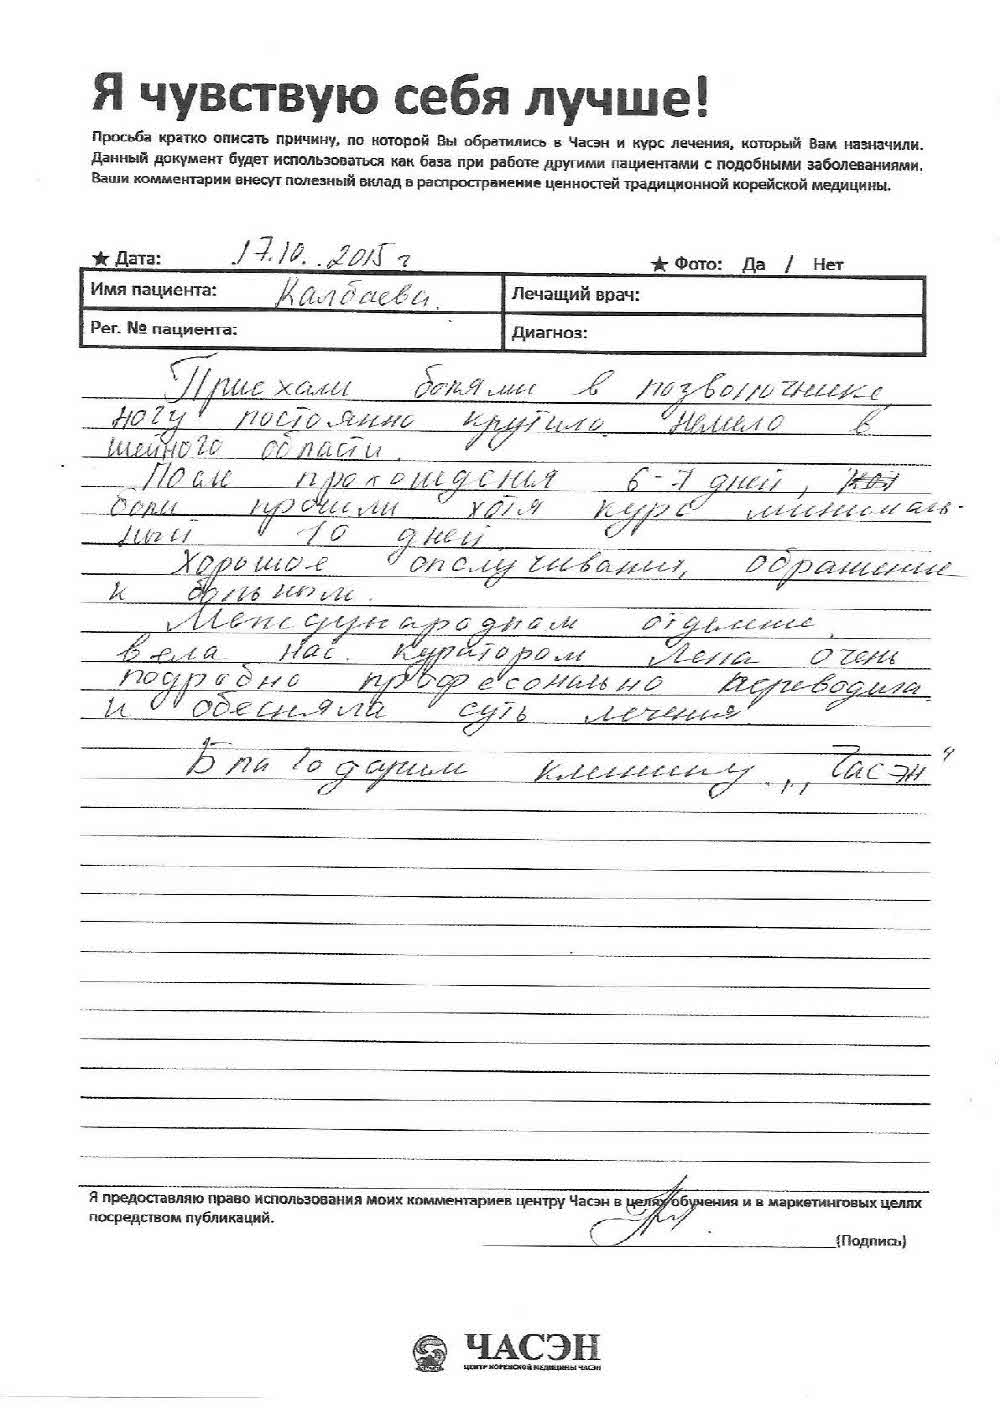 Я чувствую себя лучше!
Просьба кратко описать причину, по которой Вы обратились в Часэн и курс лечения, который Вам назначили.
Данный документ будет использоваться как база при работе другими пациентами с подобными заболеваниями.
Ваши комментарии внесут полезный вклад в распространение ценностей традиционной корейской медицины.
★ Дата: 17.10..2015 г
★ Фото: Да / Нет
Имя пациента: Калбаева.
Лечащий врач:
Рег. № пациента:
Диагноз:
Приехали болями в позвоночнике,
ногу постоянно крутило. Немело в
шейного области.
После прохождения 6-7 дней,
боли прошли хотя курс минималь-
ный 10 дней
Хорошое опслучивания, обрашение
к больным.
Международном отделние.
вела нас куратором Лена очень
подробно профессонально переводила
и обесняла суть лечения.
Благодарим клинику „Часэн“
Я предоставляю право использования моих комментариев центру Часэн в целях обучения и в маркетинговых целях
посредством публикаций.
(Подпись)
ЧАСЭН
ЦЕНТР КОРЕЙСКОЙ МЕДИЦИНЫ ЧАСЭН